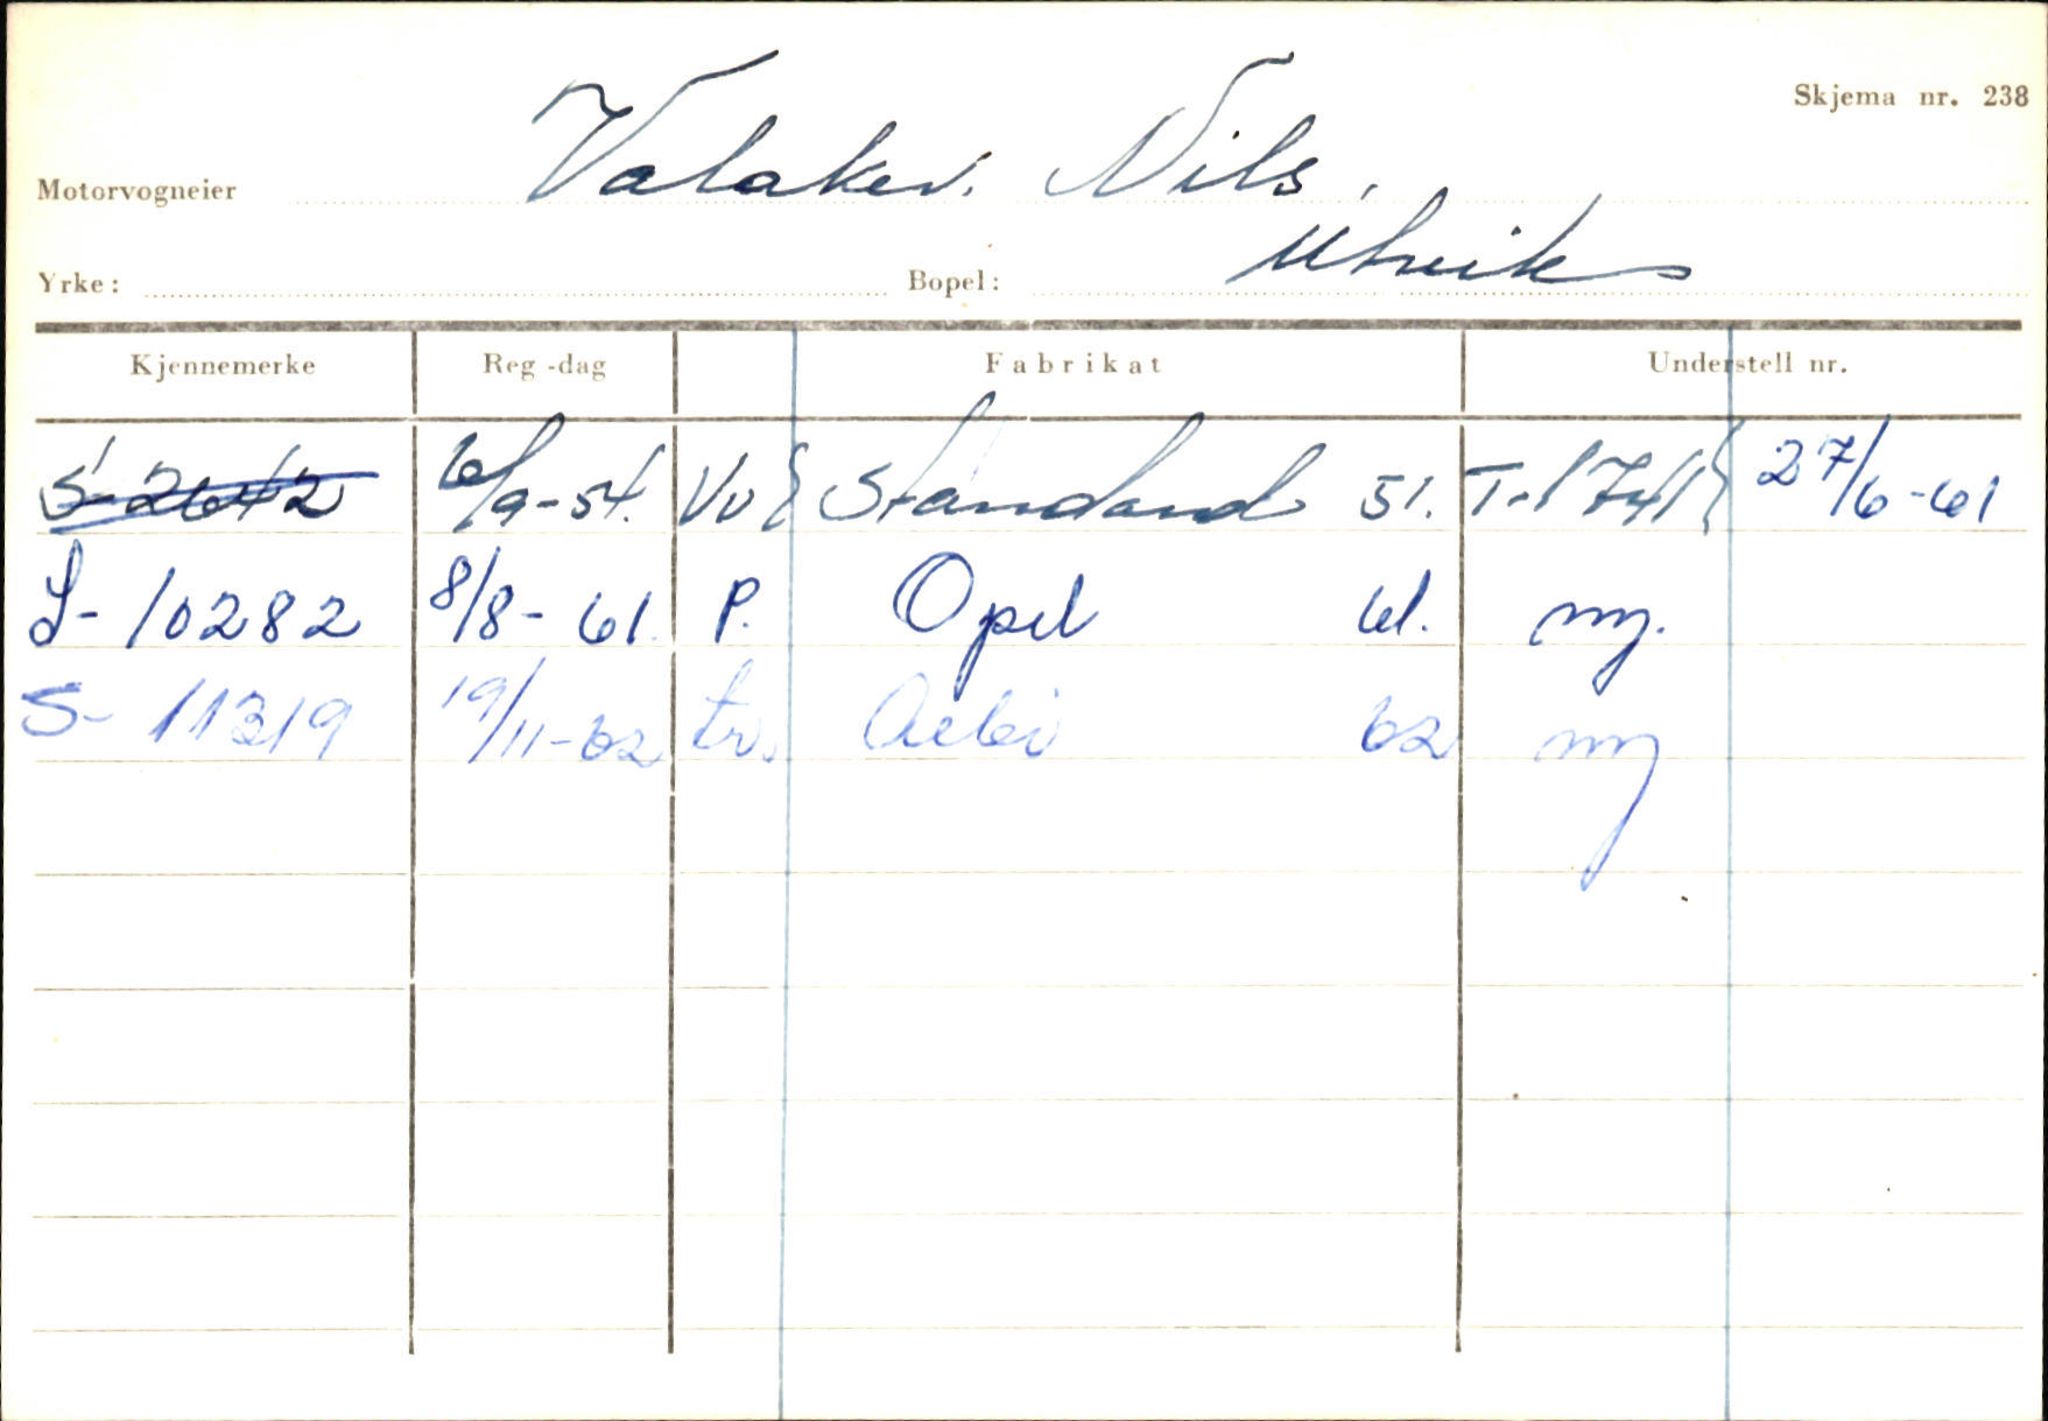 Skjema nr. 238
Motorvogneier Valaker. Nils,
Yrke: Bopel: Utvik
Kjennemerke Reg-dag Fabrikat Understell nr.
S-2642 6/9-54. Vv Standard 51. 27/6-61
S-10282 8/8-61. P. Opel 61. ny.
S-11319 19/11-62 tr. Aebi 62 ny